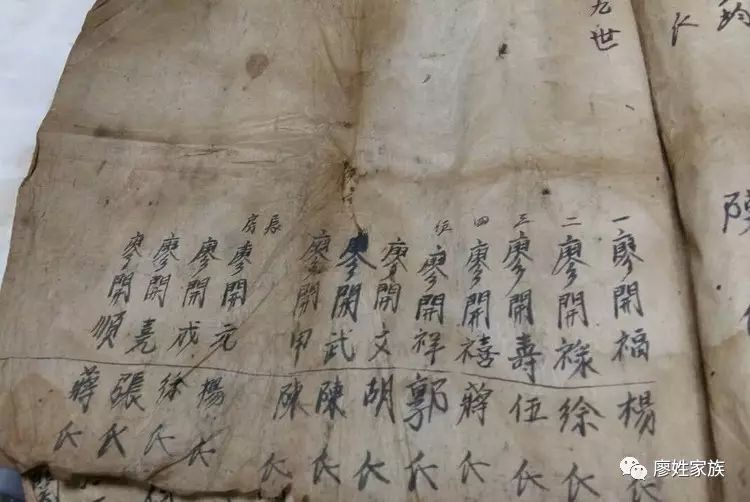 九世
一廖開福 楊氏
二廖開祿 徐氏
三廖開壽 伍氏
四廖開禧 蔣氏
伍廖開祥 郭氏
廖開文 胡氏
廖開武 陳氏
廖開甲 陳氏
長房
廖開元 楊氏
廖開成 徐氏
廖開堯 張氏
廖開順 蔣氏
廖姓家族